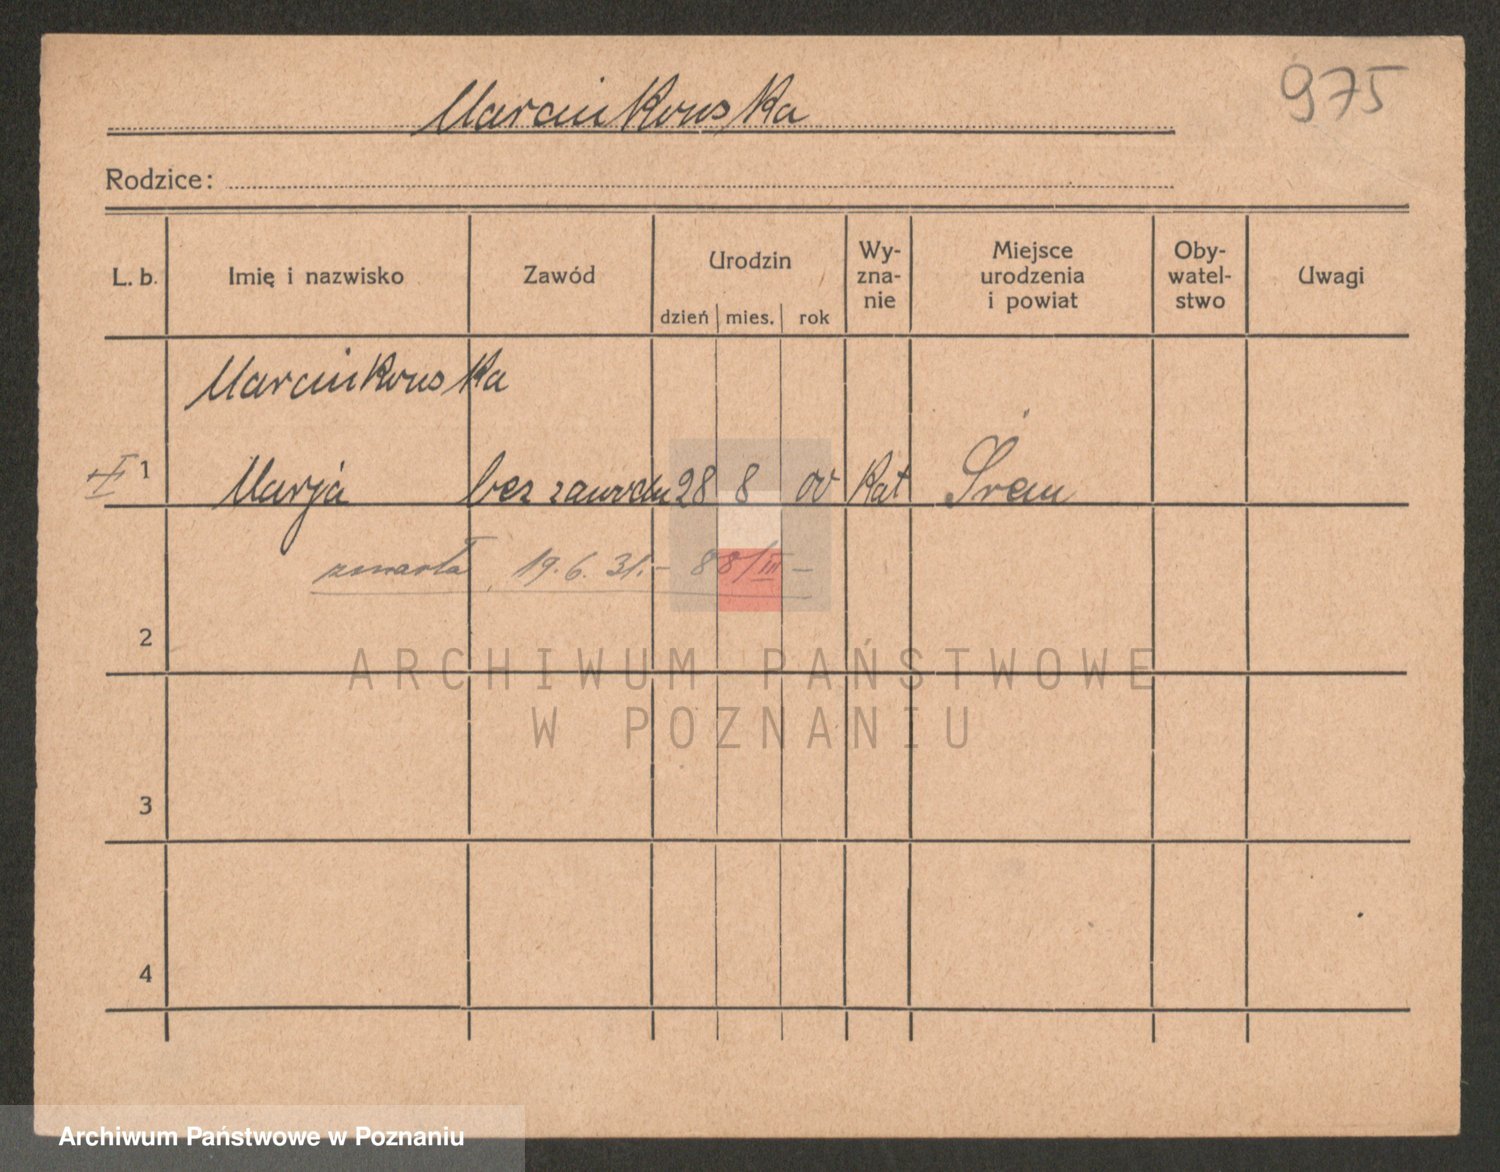 Marcinkowska
975
Rodzice:
L. b. Imię i nazwisko Zawód Urodzin dzień mies. rok Wy-zna-nie Miejsce urodzenia i powiat Oby-watel-stwo Uwagi
Marcinkowska
1 Marja bez zawodu 28 8 00 Kat Śrem
zmarła 19.6.31.- 88/III -
2
ARCHIWUM PAŃSTWOWE
W POZNANIU
3
4
Archiwum Państwowe w Poznaniu